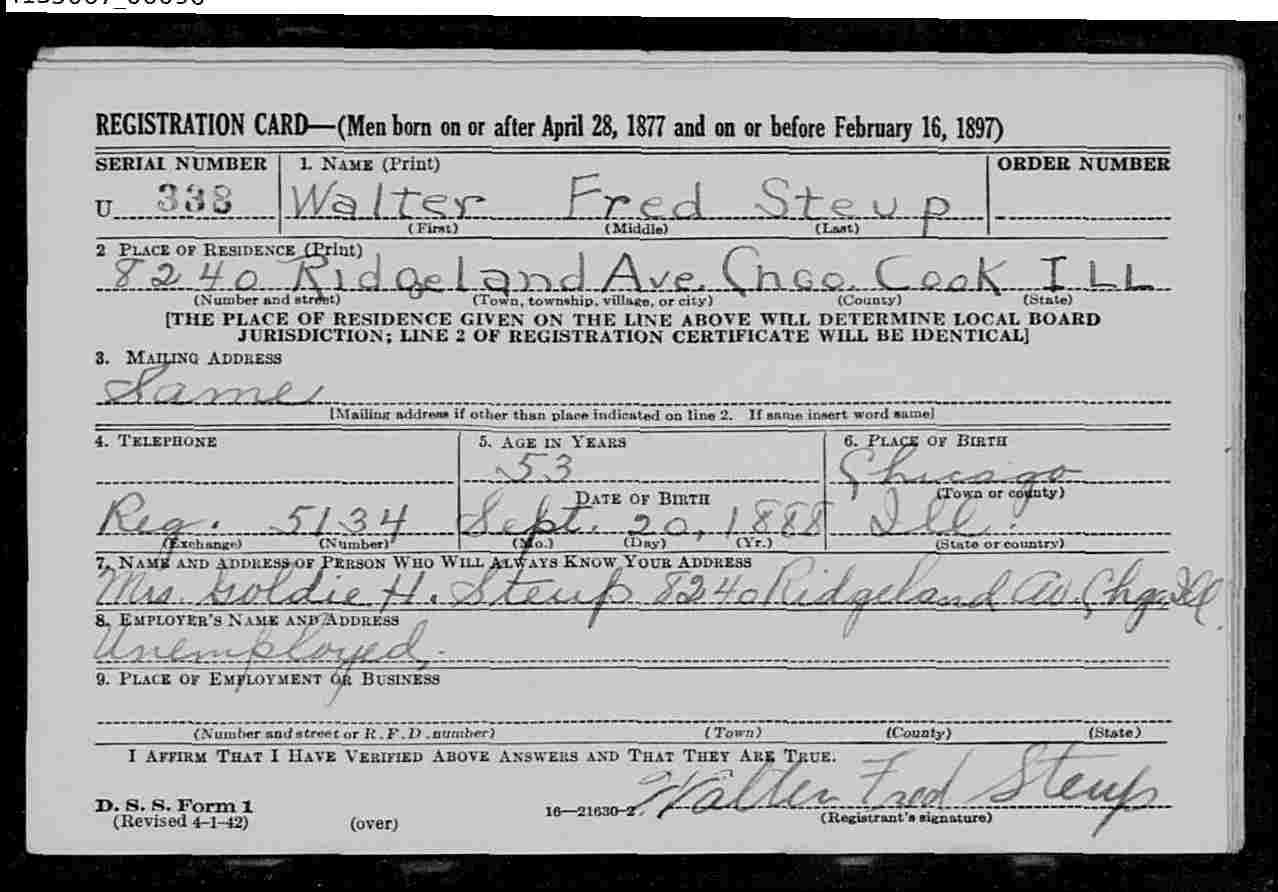 REGISTRATION CARD—(Men born on or after April 28, 1877 and on or before February 16, 1897)
SERIAL NUMBER 1. NAME (Print) ORDER NUMBER
U 338 Walter Fred Steup
(First) (Middle) (Last)
2 PLACE OF RESIDENCE (Print)
8240 Ridgeland Ave. Chgo. Cook ILL
(Number and street) (Town, township, village, or city) (County) (State)
[THE PLACE OF RESIDENCE GIVEN ON THE LINE ABOVE WILL DETERMINE LOCAL BOARD
JURISDICTION; LINE 2 OF REGISTRATION CERTIFICATE WILL BE IDENTICAL]
3. MAILING ADDRESS
Same
[Mailing address if other than place indicated on line 2. If same insert word same]
4. TELEPHONE 5. AGE IN YEARS 6. PLACE OF BIRTH
53 Chicago
DATE OF BIRTH (Town or county)
Reg. 5134 Sept. 20, 1888 Ill.
(Exchange) (Number) (Mo.) (Day) (Yr.) (State or country)
7. NAME AND ADDRESS OF PERSON WHO WILL ALWAYS KNOW YOUR ADDRESS
Mrs. Goldie H. Steup 8240 Ridgeland Av. Chgo. Ill.
8. EMPLOYER'S NAME AND ADDRESS
Unemployed.
9. PLACE OF EMPLOYMENT OR BUSINESS
(Number and street or R. F. D. number) (Town) (County) (State)
I AFFIRM THAT I HAVE VERIFIED ABOVE ANSWERS AND THAT THEY ARE TRUE.
Walter Fred Steup
D. S. S. Form 1 16—21630-2 (Registrant's signature)
(Revised 4-1-42) (over)